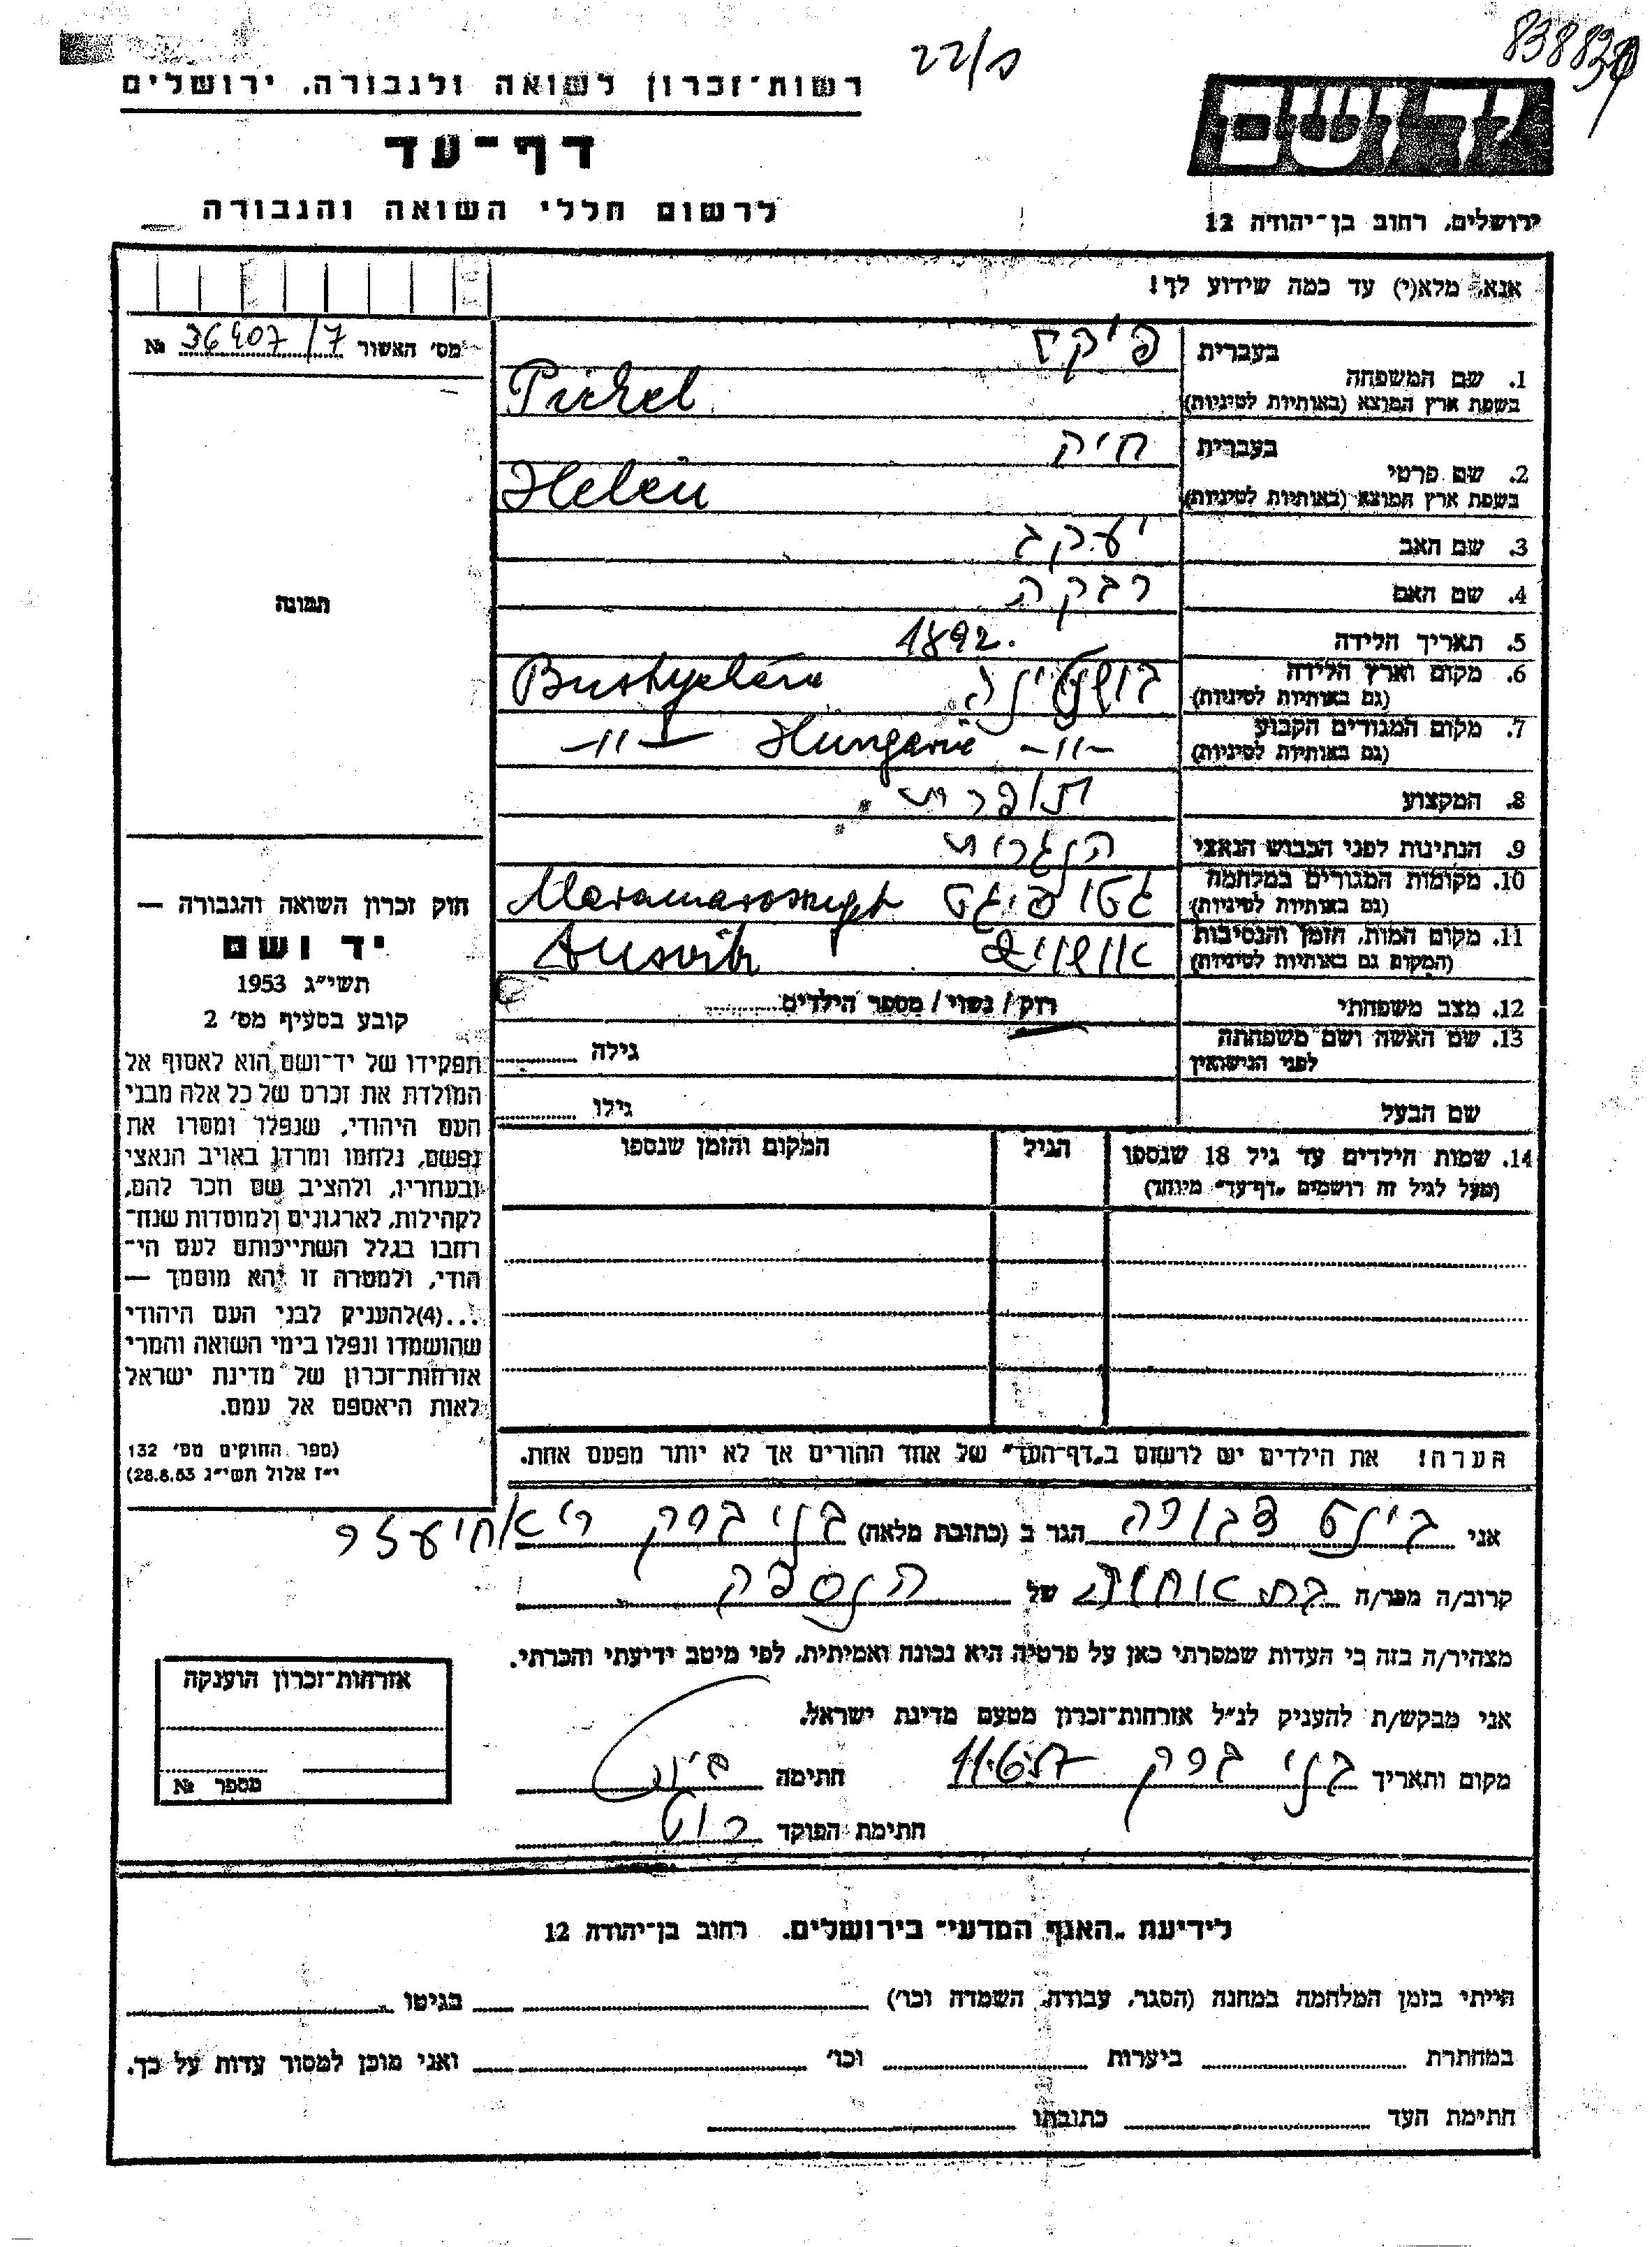 838830
22/ם
יד ושם
ירושלים, רחוב בן־יהודה 12
רשות־זכרון לשואה ולגבורה, ירושלים
דף־עד
לרשום חללי השואה והגבורה
אנא, מלא(י) עד כמה שידוע לך!
מס׳ האשור № 36407/7
תמונה
1. שם המשפחה
בעברית
פיקל
בשפת ארץ המוצא (באותיות לטיניות)
Pickel
2. שם פרטי
בעברית
חיה
בשפת ארץ המוצא (באותיות לטיניות)
Helen
3. שם האב יעקב
4. שם האם רבקה
5. תאריך הלידה 1892.
6. מקום וארץ הלידה
(גם באותיות לטיניות)
בושטינה Bustyaháza
7. מקום המגורים הקבוע
(גם באותיות לטיניות)
-״- Hungarie -״-
8. המקצוע תופרת
9. הנתינות לפני הכבוש הנאצי הונגרית
10. מקומות המגורים במלחמה
(גם באותיות לטיניות)
גטו סיגט
11. מקום המות, הזמן והנסיבות
(המקום גם באותיות לטיניות)
אושויץ Ausvitz
12. מצב משפחתי רווק / נשוי / מספר הילדים
13. שם האשה ושם משפחתה
לפני הנישואין
גילה
שם הבעל
גילו
14. שמות הילדים עד גיל 18 שנספו
(מעל לגיל זה רושמים „דף־עד״ מיוחד)
הגיל
המקום והזמן שנספו
הערה! את הילדים יש לרשום ב„דף־העד״ של אחד ההורים אך לא יותר מפעם אחת.
חוק זכרון השואה והגבורה —
יד ושם
תשי״ג 1953
קובע בסעיף מס׳ 2
תפקידו של יד־ושם הוא לאסוף אל
המולדת את זכרם של כל אלה מבני
העם היהודי, שנפלו ומסרו את
נפשם, נלחמו ומרדו באויב הנאצי
ובעוזריו, ולהציב שם וזכר להם,
לקהילות, לארגונים ולמוסדות שנח־
רבו בגלל השתייכותם לעם הי־
הודי, ולמטרה זו יהא מוסמך —
...(4)להעניק לבני העם היהודי
שהושמדו ונפלו בימי השואה והמרי
אזרחות־זכרון של מדינת ישראל
לאות היאספם אל עמם.
(ספר החוקים מס׳ 132
י״ז אלול תשי״ג 28.8.53)
אני צפורה הגר ב (כתובת מלאה) בני ברק ר׳ אחיעזר
קרוב/ה מכר/ה בת אחותה של הנספה
מצהיר/ה בזה כי העדות שמסרתי כאן על פרטיה היא נכונה ואמיתית, לפי מיטב ידיעתי והכרתי.
אני מבקש/ת להעניק לנ״ל אזרחות־זכרון מטעם מדינת ישראל.
מקום ותאריך בני ברק חתימה
חתימת הפוקד
אזרחות־זכרון הוענקה
מספר №
לידיעת „האגף המדעי״ בירושלים. רחוב בן־יהודה 12
הייתי בזמן המלחמה במחנה (הסגר, עבודה, השמדה וכו׳) בגיטו
במחתרת ביערות וכו׳ ואני מוכן למסור עדות על כך.
חתימת העד כתובתו